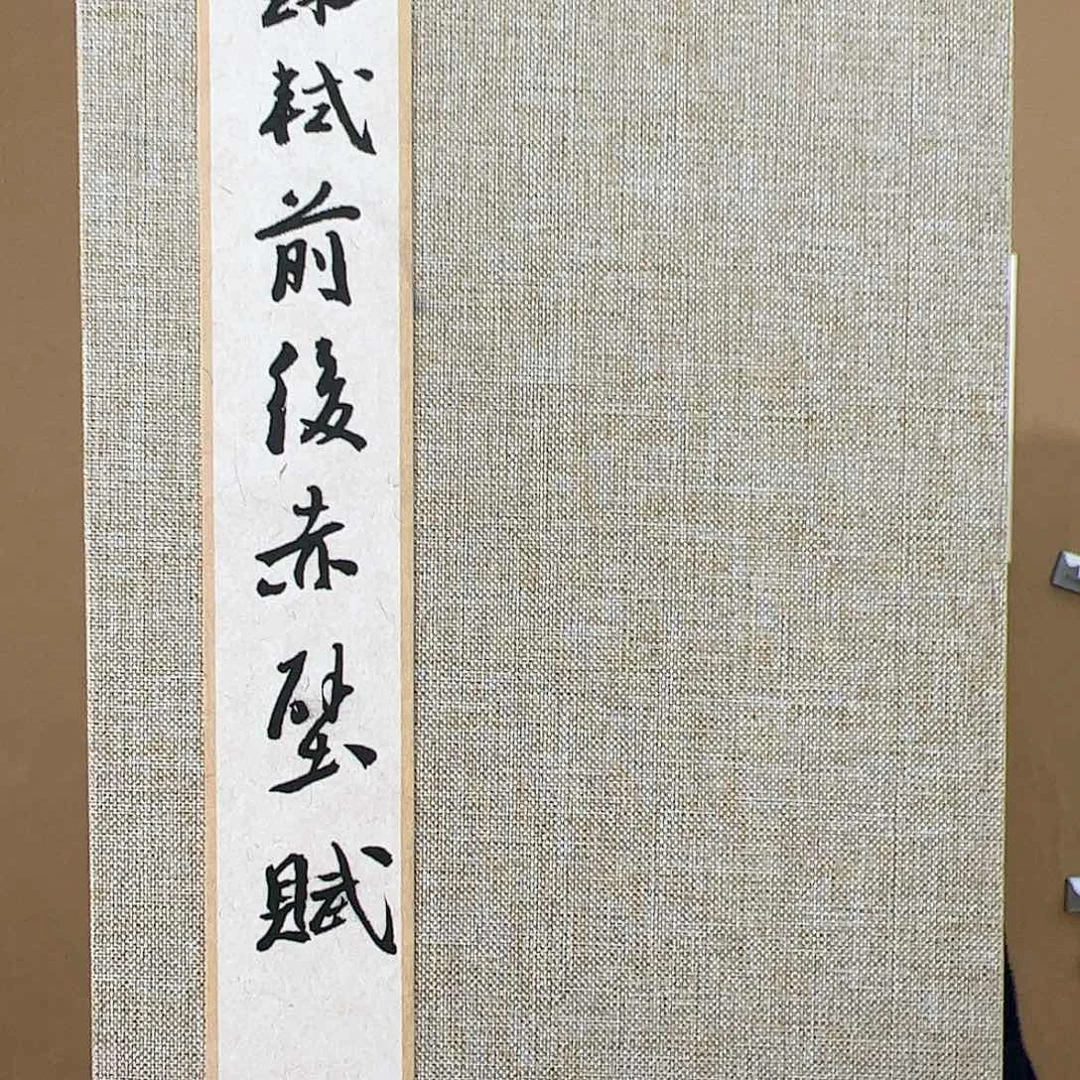 蘇軾前後赤壁賦